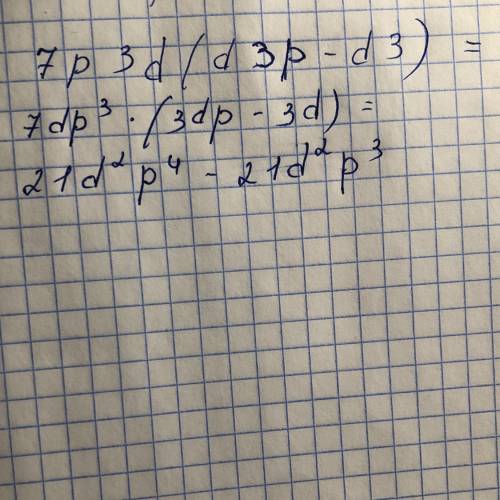 7p 3d(d3p-d3) =
7dp³ · (3dp - 3d) =
21d²p⁴ - 21d²p³